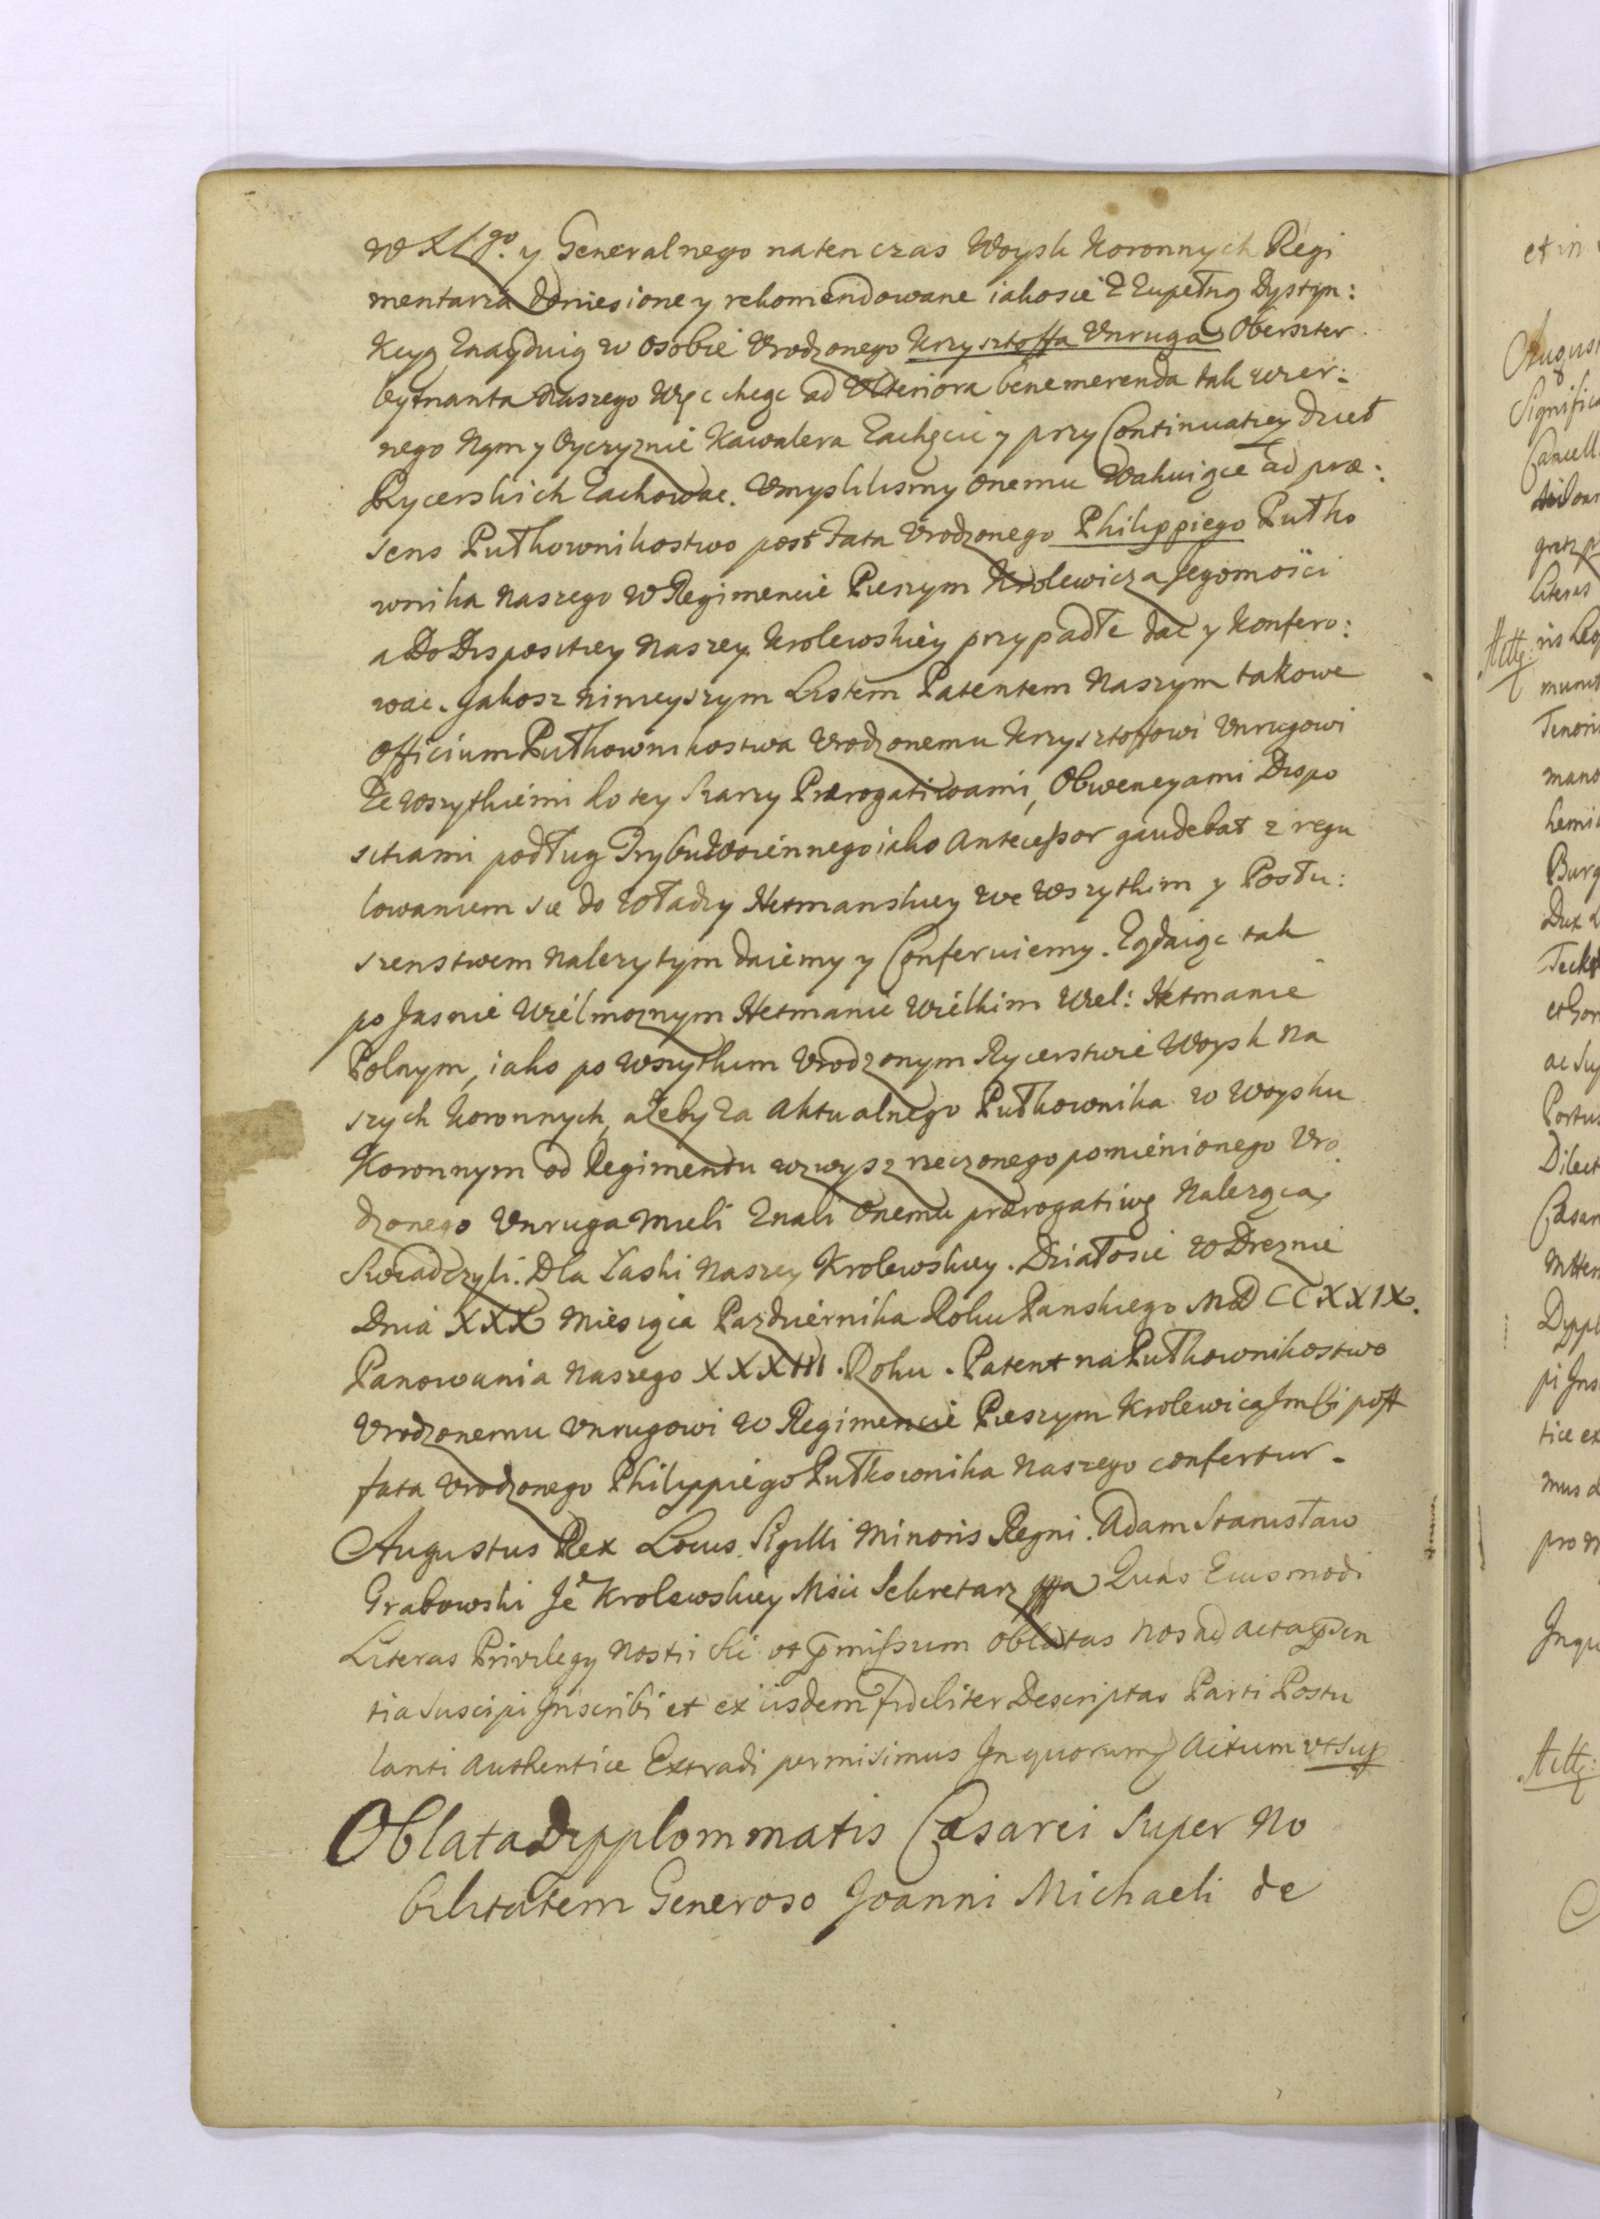 WXLgo. y Generalnego natenczas Woysk Koronnych Regi
mentarza doniesione y rekomendowane iakosie z zupełną Dystyn:
kcyą znayduią w osobie Vrodzonego Krzysztoffa Vnruga Oberszter
leytnanta Naszego Więc chcąc ad Vlteriora benemerenda tak wier:
nego Nąm y Oyczyznie Kawalera Zachęcić y przy Continuatiey dzieł
Rycerskich Zachować. Vmyslilismy onemu Wakuiące ad præ:
sens Pułkownikostwo post fata Vrodzonego Philippiego Pułko
wnika Naszego w Regimencie Pieszym Krolewicza Jegomości
a Do Dispositiey Naszey Krolewskiey przypadłe dać y Konfero:
wać. Jakosz ninieyszym Listem Patentem Naszym takowe
Officium Pułkownikostwa Vrodzonemu Krzysztoffowi Vnrugowi
Ze wszytkiemi do tey Szarzy Prærogatiwami, Obwencyami Dispo
sitiami podług Trybu Woiennego iako Antecessor gaudebat z regu
lowaniem się do władzy Hetmanskiey we wszytkim y Posłu:
szenstwem Nalezytym daiemy y Conferuiemy. Ządaiąc tak
po Jasnie Wielmoznym Hetmanie Wielkim Wiel: Hetmanie
Polnym, iako po wszytkim Vrodzonym Rycerstwie Woysk Na
szych Koronnych, ażeby za Aktualnego Pułkownika w Woysku
Koronnym od Regimentu wzwysz rzeczonego pomienionego Vro
dzonego Vnruga mieli Znali Onemu prærogatiwę Nalezącą
Swiadczyli. Dla Łaski Naszey Krolewskiey. Działosie w Dreznie
Dnia XXX Miesiąca Pazdziernika Roku Panskiego MDCCXXIX.
Panowania Naszego XXXIII. Roku. Patent na Pułkownikostwo
Vrodzonemu Vnrugowi w Regimencie Pieszym Krolewica Jmsci post
fata Vrodzonego Philippiego Pułkownika Naszego confertur.
Augustus Rex Locus Sigilli Minoris Regni. Adam Stanisław
Grabowski Je Krolewskiey Msci Sekretarz mpa Quas Eiusmodi
Literas Privilegy Nostri Sic ut pmissum oblatas Nos ad acta psen
tia Suscipi Inscribi et ex iisdem fideliter Descriptas Parti Postu
lanti Authentice Extradi permisimus In quorum Actum vt sup
Oblata Dypplommatis Cæsarei Super No
bilitatem Generoso Joanni Michaeli de